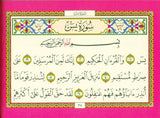 سُورَةُ يسٓ
بِسْمِ اللَّهِ الرَّحْمَٰنِ الرَّحِيمِ
يسٓ وَالْقُرْءَانِ الْحَكِيمِ إِنَّكَ لَمِنَ الْمُرْسَلِينَ عَلَىٰ
صِرَٰطٍ مُّسْتَقِيمٍ تَنزِيلَ الْعَزِيزِ الرَّحِيمِ لِتُنذِرَ
قَوْمًا مَّا أُنذِرَ ءَابَاؤُهُمْ فَهُمْ غَٰفِلُونَ